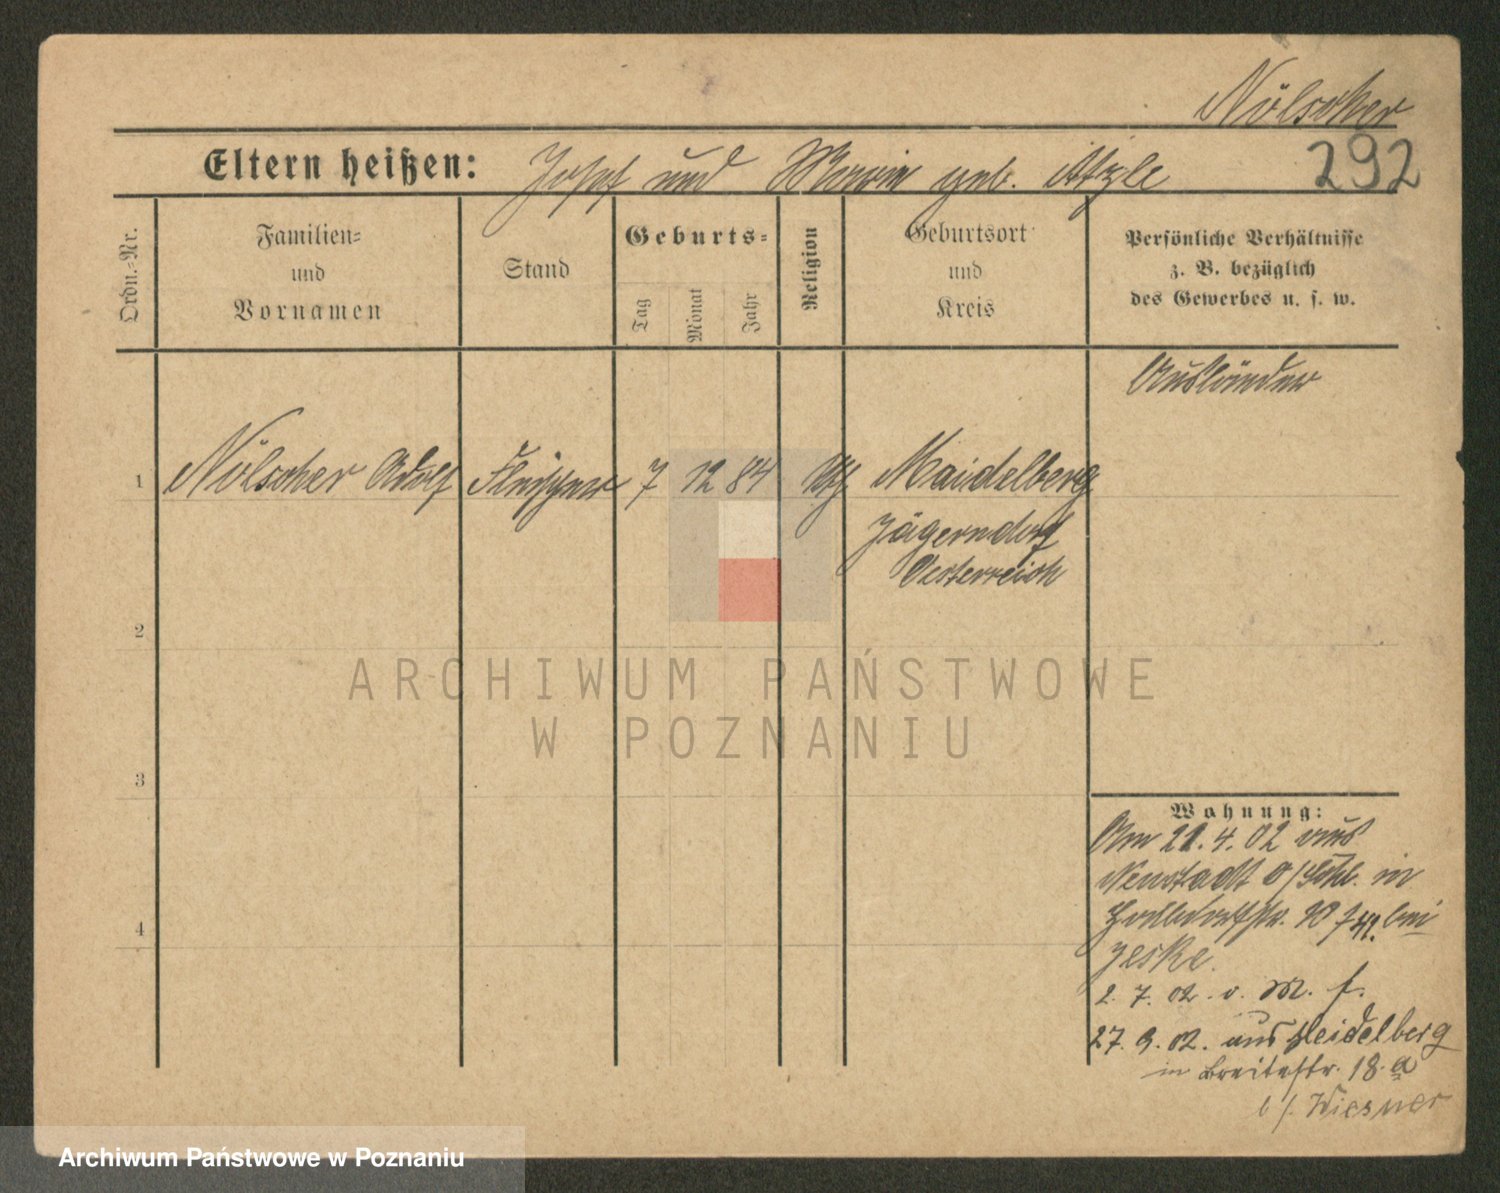 Nölscher
Eltern heißen: Josef und Maria geb. Atzle
292
Ordn.-Nr.
Familien-
und
Vornamen
Stand
Geburts-
Tag
Monat
Jahr
Religion
Geburtsort
und
Kreis
Persönliche Verhältnisse
z. B. bezüglich
des Gewerbes u. s. w.
Ausländer
1 Nölscher Adolf Fleischer 7 12 84 kth Maidelberg
Jägerndorf
Oesterreich
2
3
4
Wohnung:
Am 21. 4. 02 aus
Neustadt O/Schl. in
bei
Jeske.
2. 7. 02. v. M. f.
27. 9. 02. aus Heidelberg
in Breitestr. 18 a
b/. Wiesner
ARCHIWUM PAŃSTWOWE
W POZNANIU
Archiwum Państwowe w Poznaniu